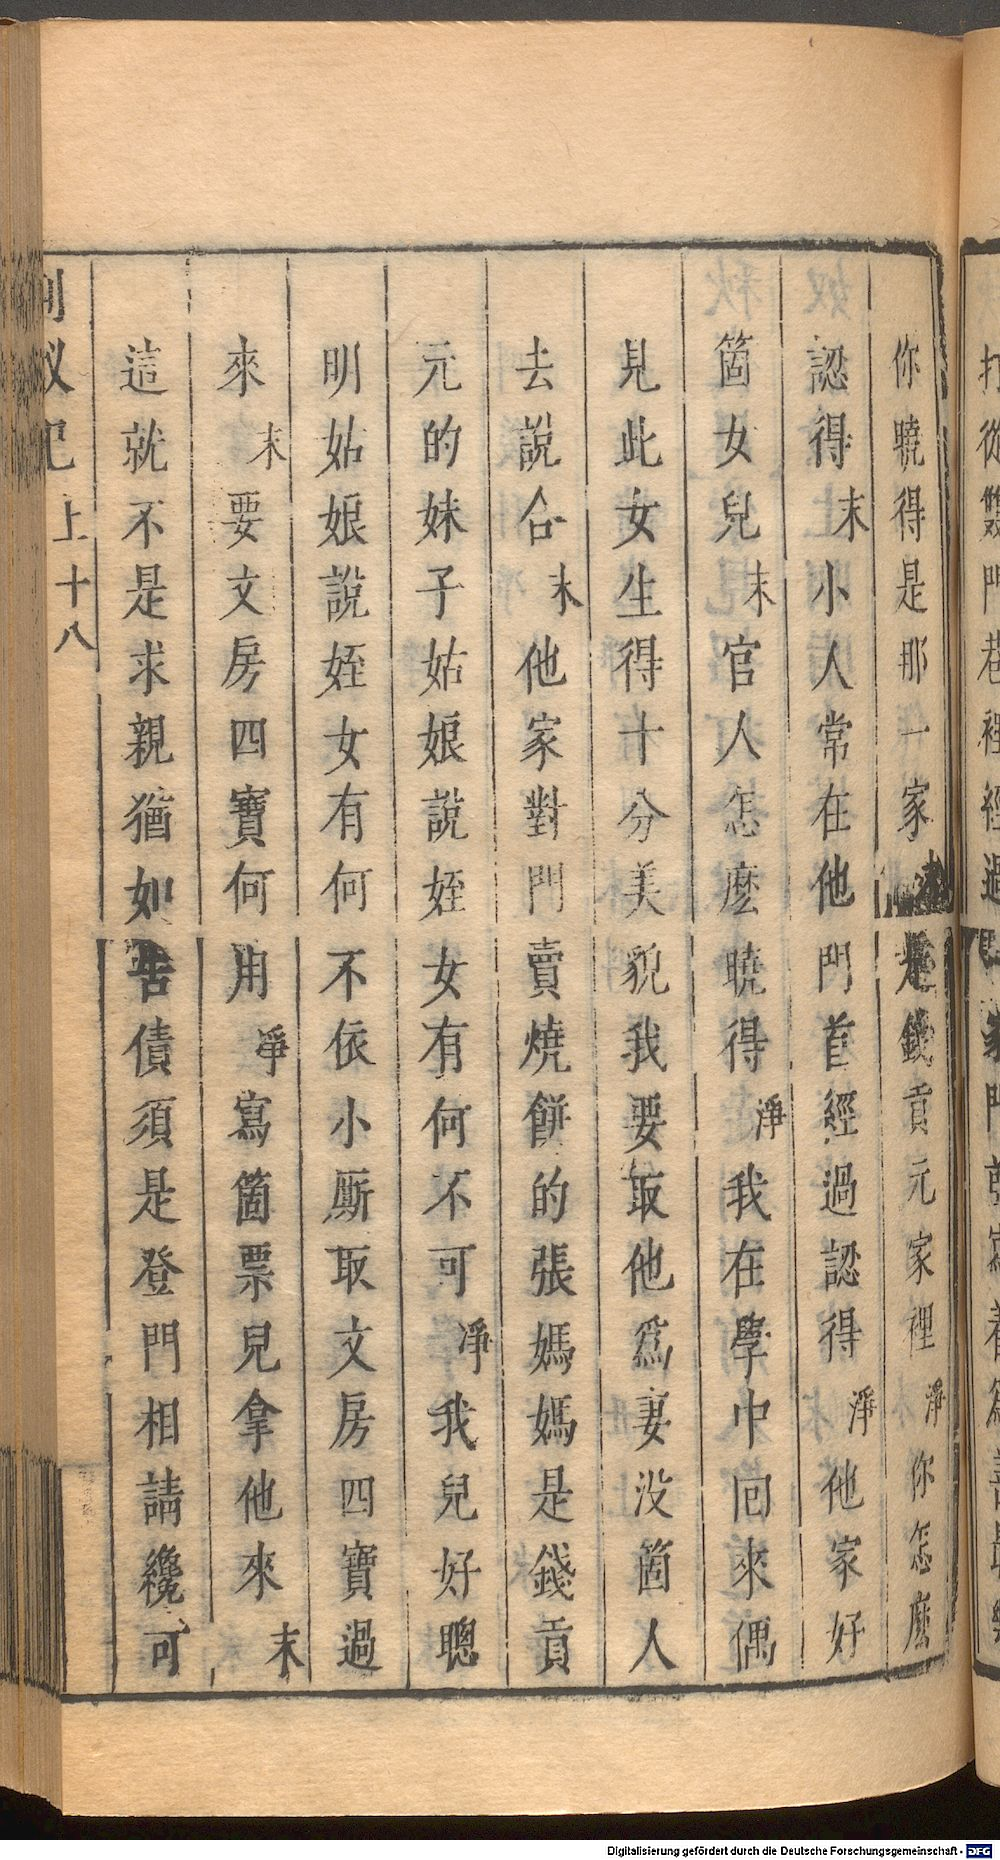 你曉得是那一家末是錢貢元家裡淨你怎麽
認得末小人常在他門首經過認得淨他家好
箇女兒末官人怎麽曉得淨我在學中回來偶
見此女生得十分美貌我要取他爲妻没箇人
去說合末他家對門賣燒餅的張媽媽是錢貢
元的妹子姑娘說姪女有何不可淨我兒好聰
明姑娘說姪女有何不依小厮取文房四寶過
來末要文房四寶何用淨寫箇票兒拿他來末
這就不是求親猶如告債須是登門相請纔可
荆釵記 上 十八
Digitalisierung gefördert durch die Deutsche Forschungsgemeinschaft - DFG